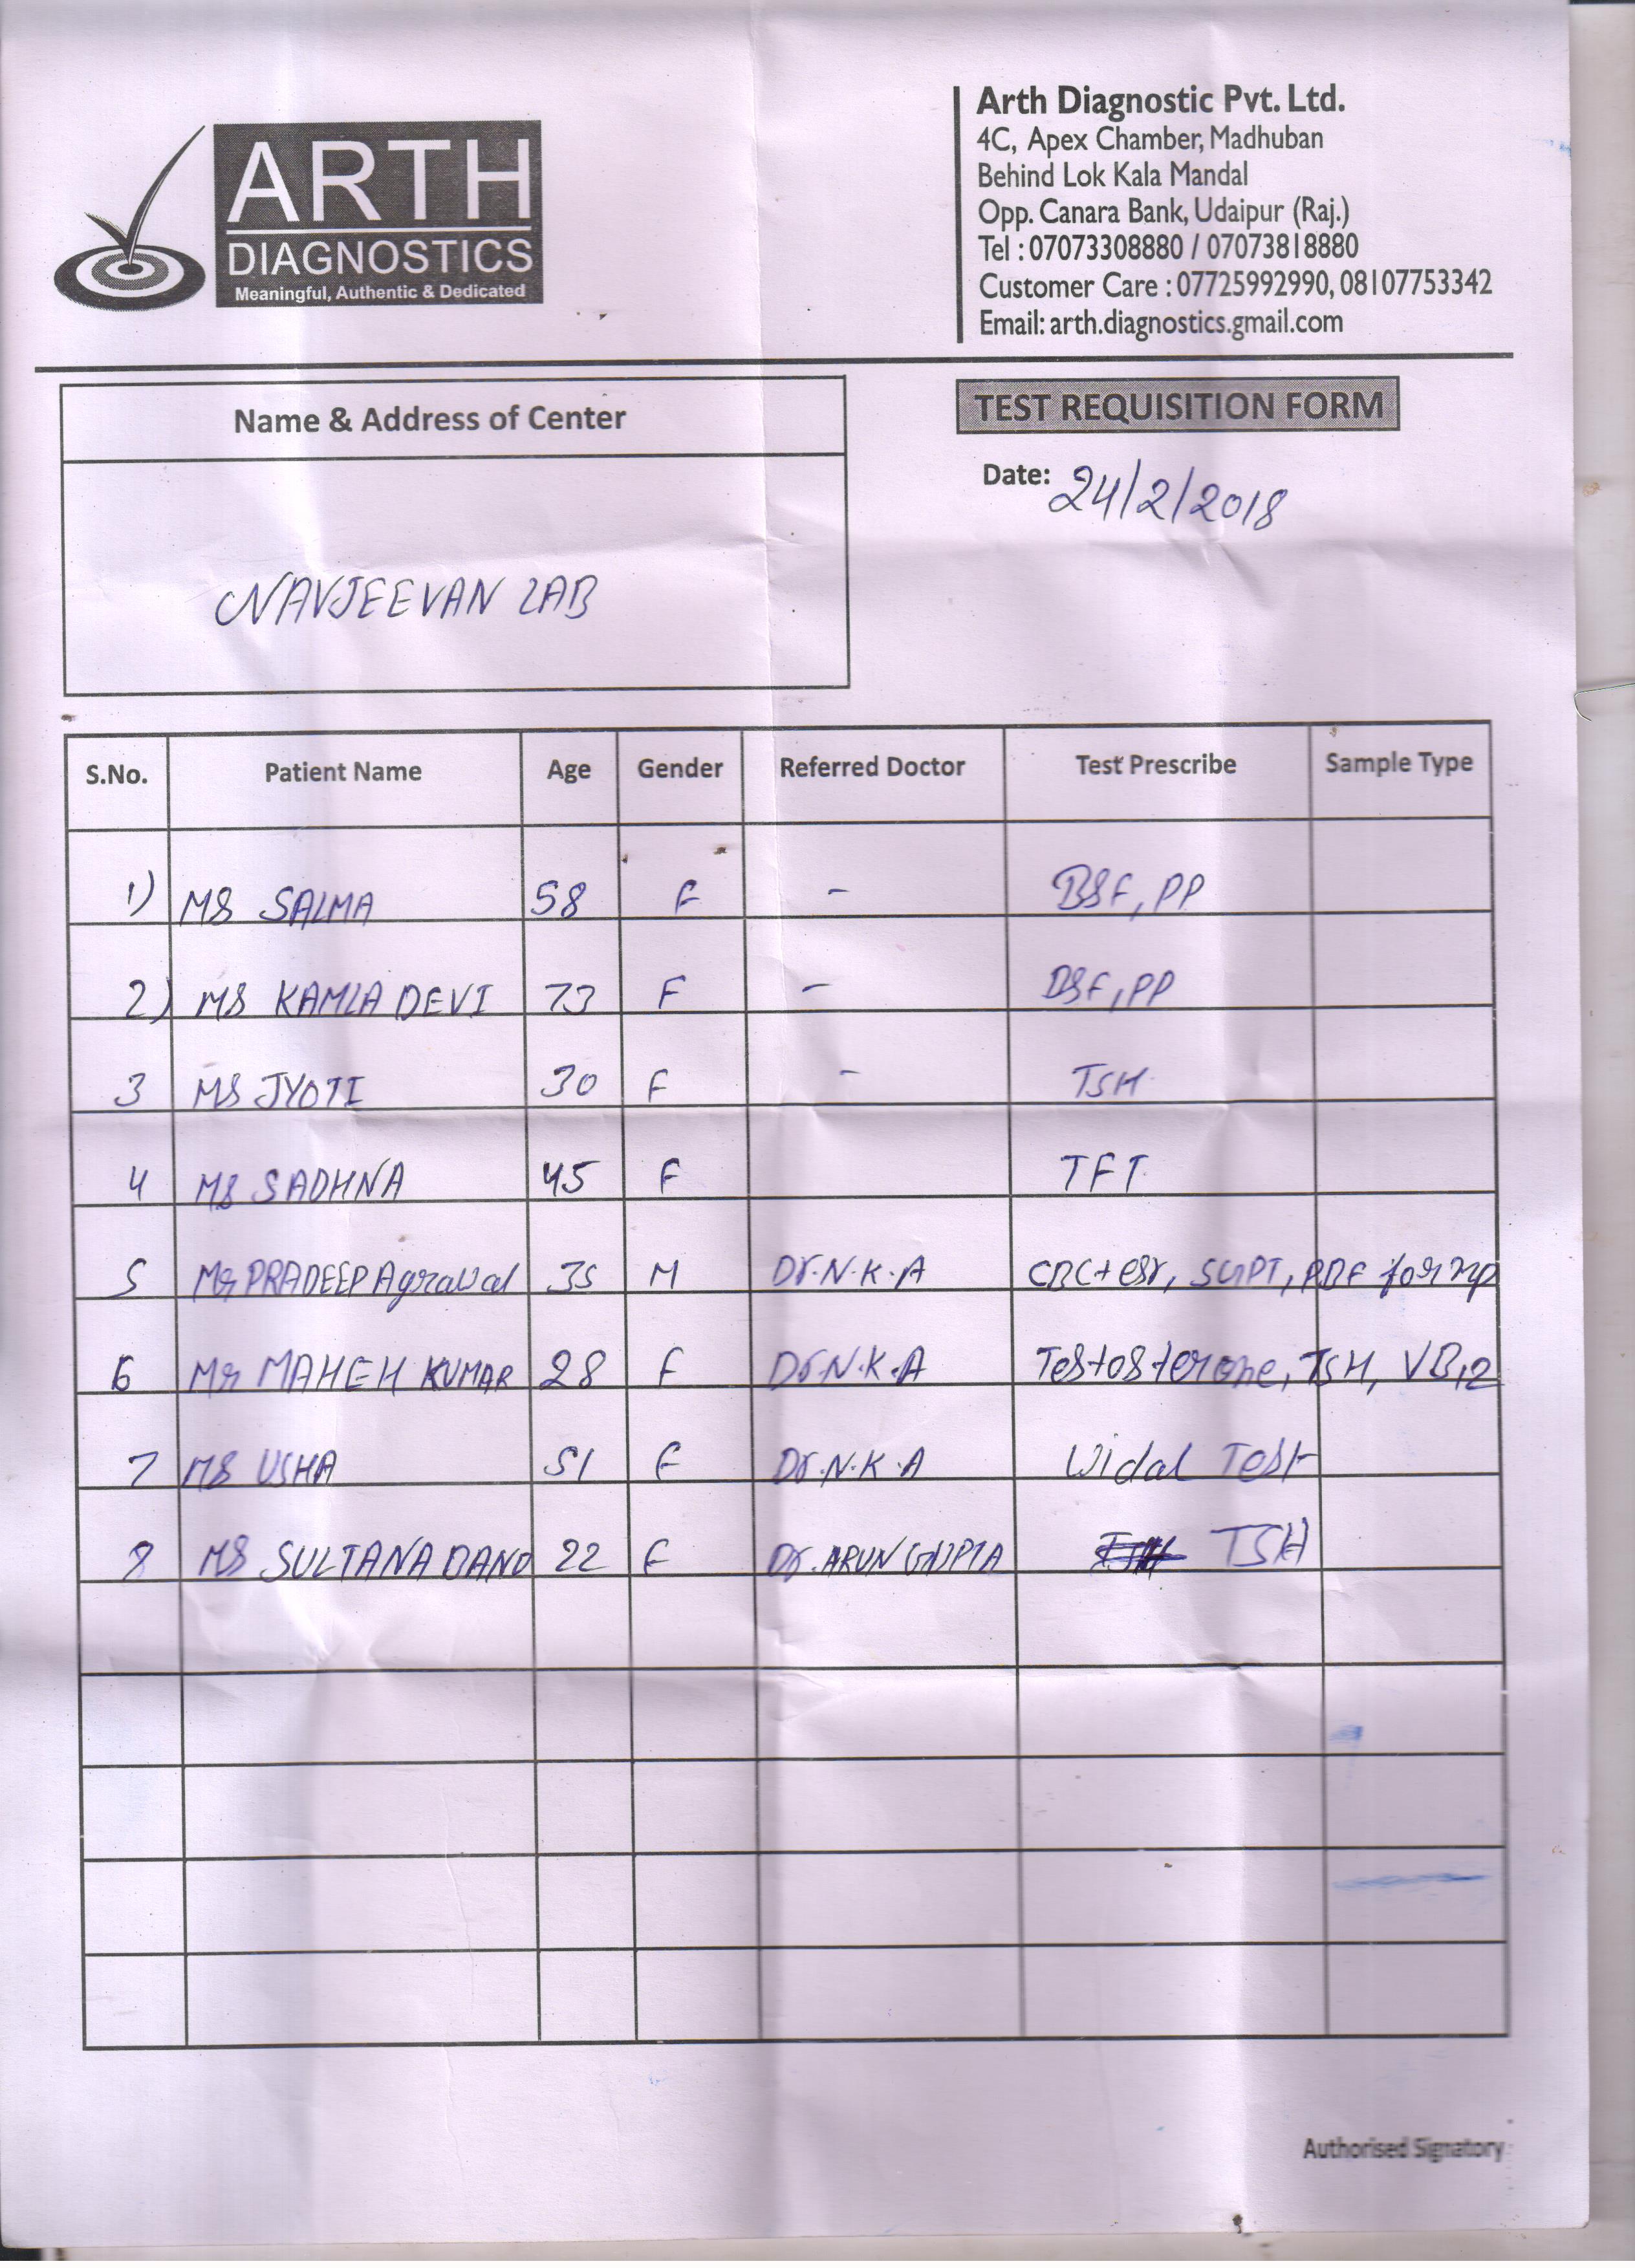 ARTH
DIAGNOSTICS
Meaningful, Authentic & Dedicated
Arth Diagnostic Pvt. Ltd.
4C, Apex Chamber, Madhuban
Behind Lok Kala Mandal
Opp. Canara Bank, Udaipur (Raj.)
Tel : 07073308880 / 07073818880
Customer Care : 07725992990, 08107753342
Email: arth.diagnostics.gmail.com
Name & Address of Center
NAVJEEVAN LAB
TEST REQUISITION FORM
Date: 24/2/2018
S.No. Patient Name Age Gender Referred Doctor Test Prescribe Sample Type
1) MS SALMA 58 F - BSF, PP
2) MS KAMLA DEVI 73 F - BSF, PP
3 MS JYOTI 30 F - TSH
4 MS SADHNA 45 F TFT
5 Mr PRADEEP Agrawal 35 M Dr.N.K.A CBC+esr, SGPT, PBF for mp
6 Mr MAHEH KUMAR 28 F Dr.N.K.A Testosterone, TSH, VB12
7 MS USHA 51 F Dr.N.K.A Widal Test
8 MS SULTANA BANO 22 F Dr. ARUN GUPTA TSH
Authorised Signatory